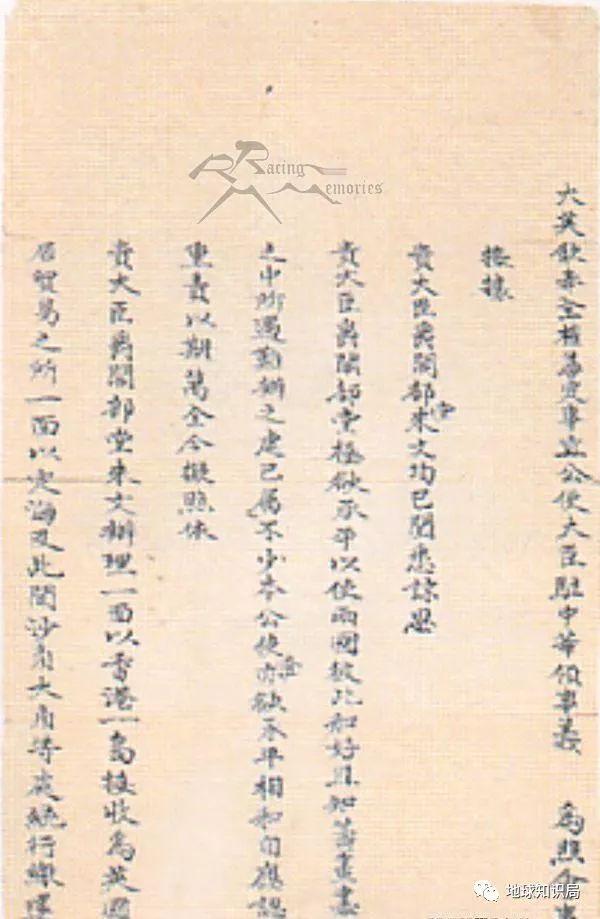 大英欽奉全權善定事宜公使大臣駐中華領事義 為照會
接據
貴大臣爵閣部堂來文均已閱悉諒思
貴大臣爵閣部堂極欲承平以使兩國彼此和好且知籌畫
之中所遇勤辦之處已屬不少本公使亦欲承平相和自應認
重責以期萬全今擬照依
貴大臣爵閣部堂來文辦理一面以香港一島接收為英國
居貿易之所一面以定海及此間沙角大角等處統行繳還
Racing
Memories
地球知识局